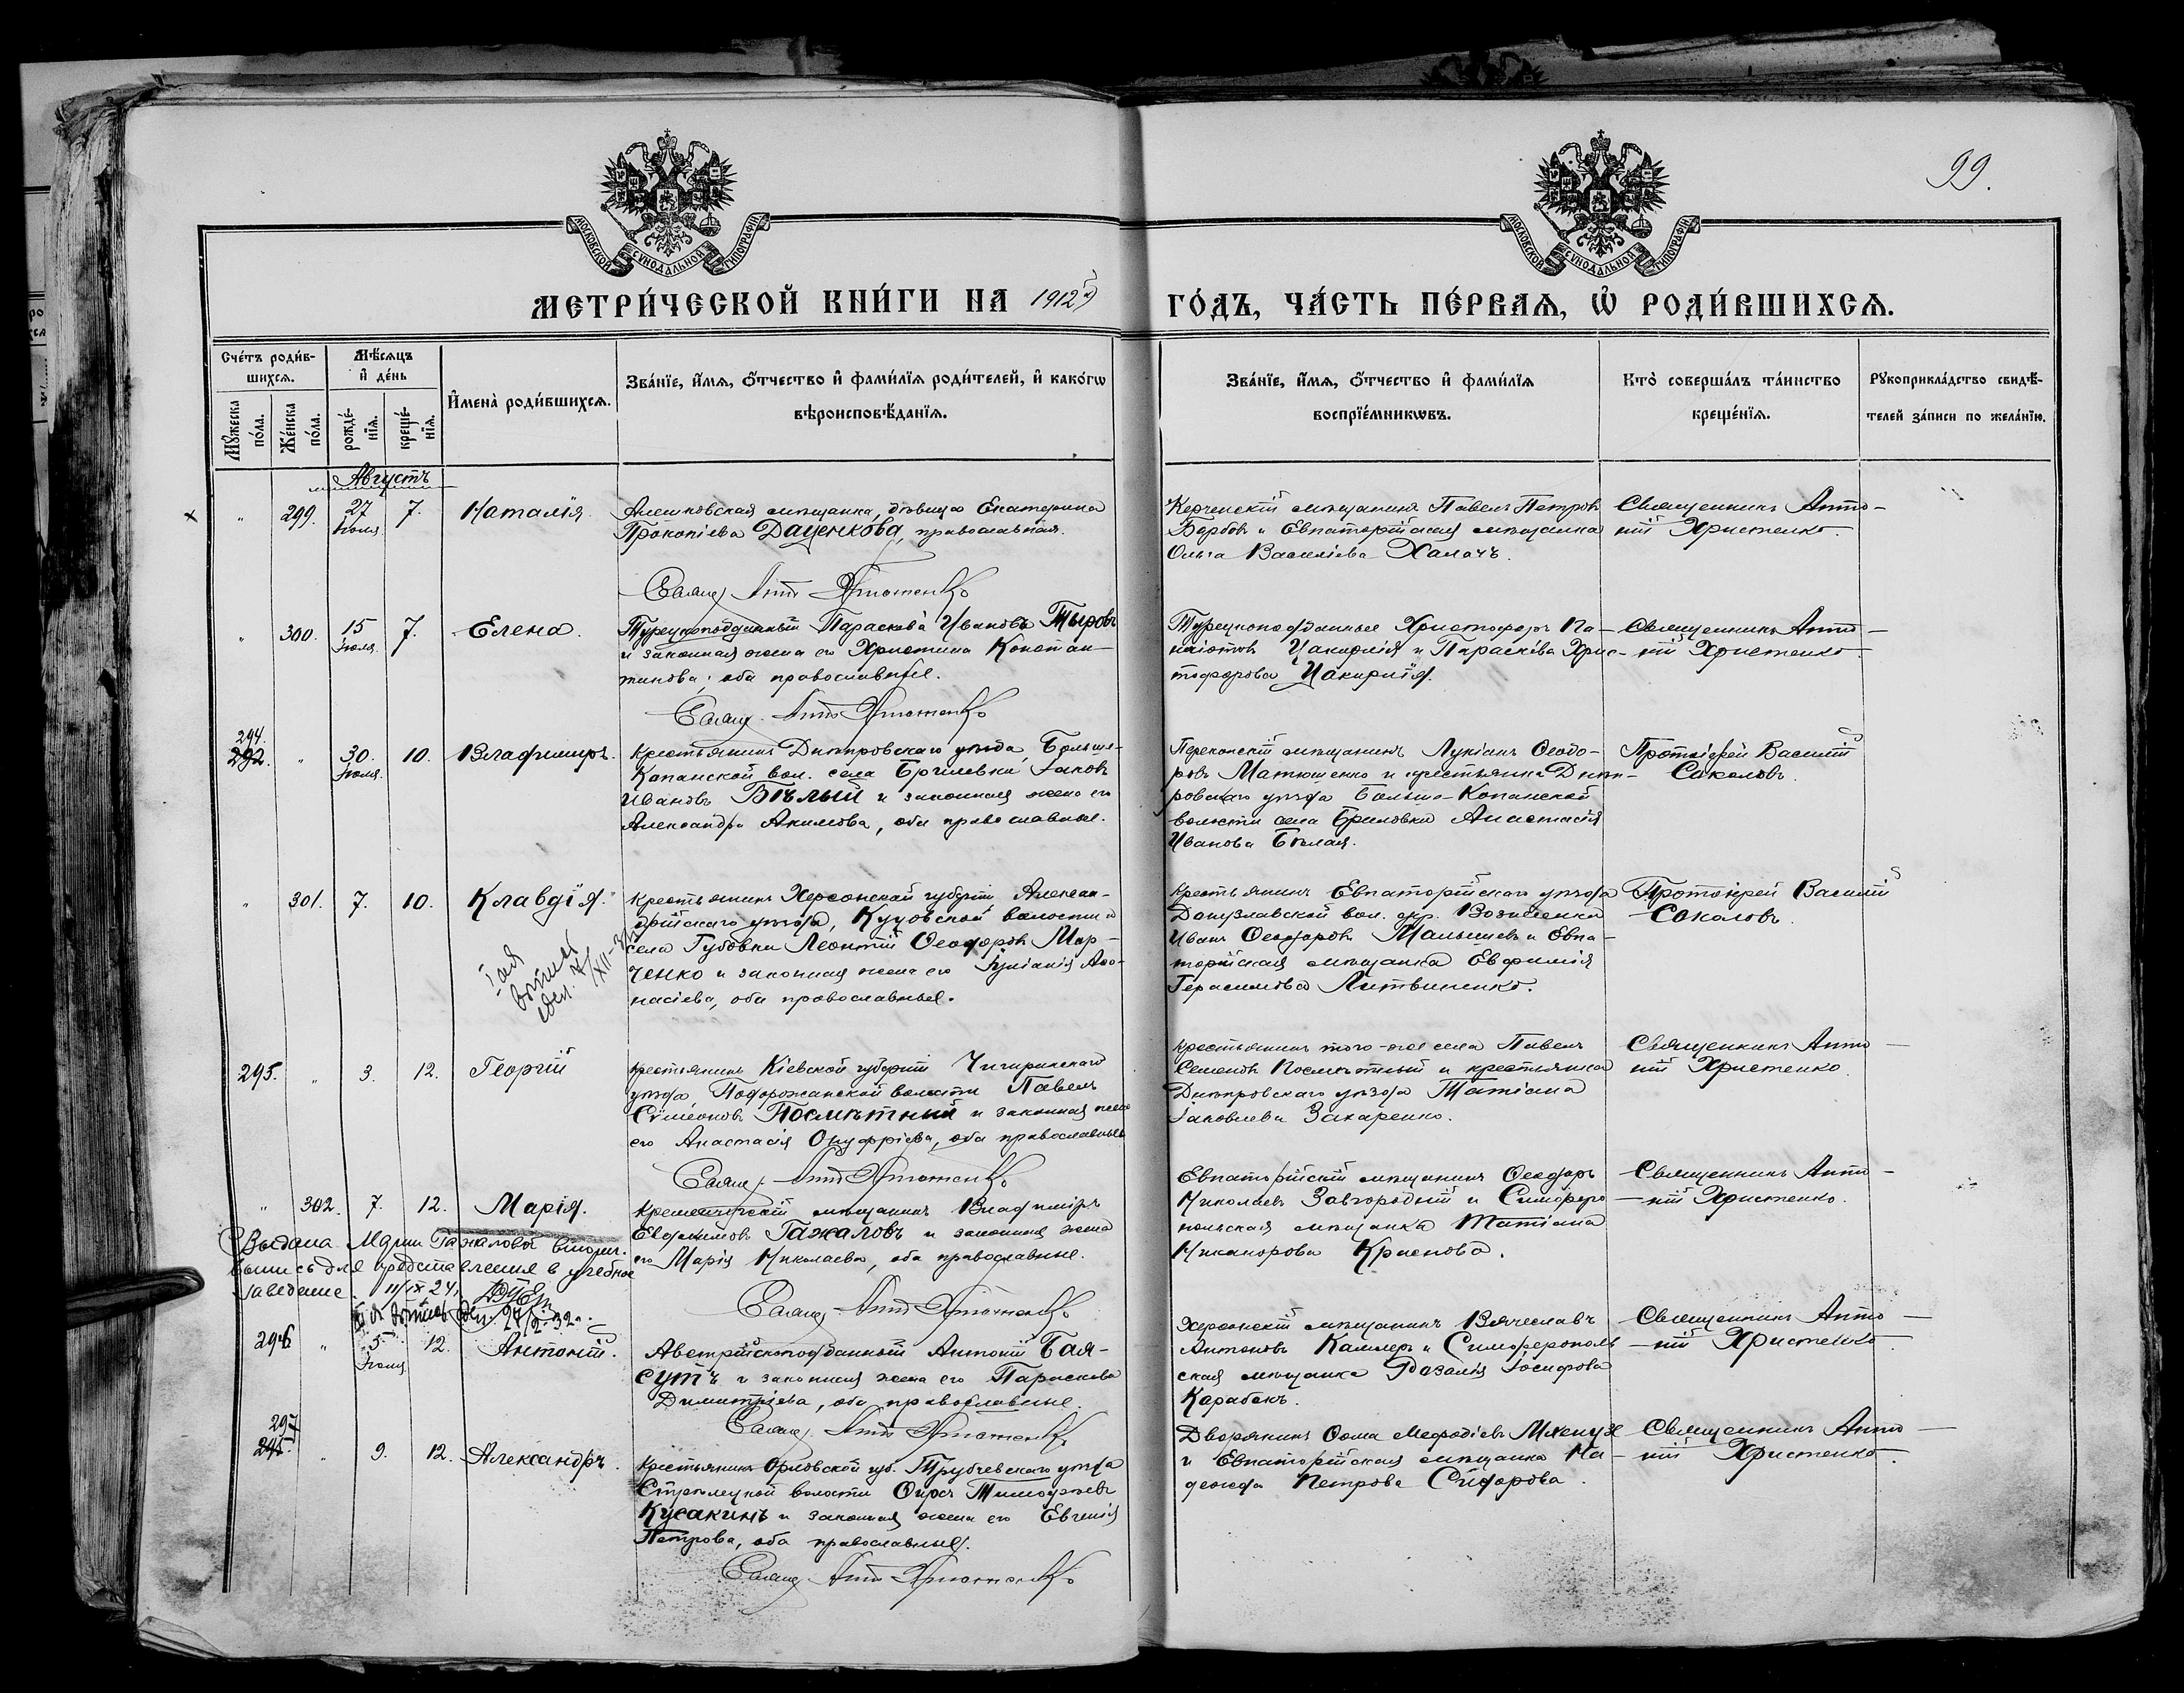 99.
МОСКОВСКОЙ СѴНОДАЛЬНОЙ ТИПОГРАФІИ
МОСКОВСКОЙ СѴНОДАЛЬНОЙ ТИПОГРАФІИ
МЕТРИ́ЧЕСКОЙ КНИ́ГИ НА 1912й ГО́ДЪ, ЧА́СТЬ ПЕ́РВАѦ, Ѽ РОДИ́ВШИХСѦ.
Сче́тъ роди́вшихсѧ.
Мꙋ́жеска по́ла.
Же́нска по́ла.
Мѣ́сѧцъ и҆ де́нь
рожде́нїѧ.
креще́нїѧ.
И҆мена̀ роди́вшихсѧ.
Зва́нїе, и҆́мѧ, ѻ҆́тчество и҆ фами́лїѧ роди́телей, и҆ како́гѡ
вѣроисповѣ́данїѧ.
Зва́нїе, и҆́мѧ, ѻ҆́тчество и҆ фами́лїѧ
воспрїе́мникѡвъ.
Кто̀ соверша́лъ та́инство
креще́нїѧ.
Рꙋкоприкла́дство свидѣ́-
телей за́писи по жела́нїю.
Августъ
" 299. 27 Іюля 7. Наталія.
Алешковская мѣщанка, дѣвица Екатерина
Прокопіева Даценкова, православная.
Керченскій мѣщанинъ Павелъ Петровъ
Барбовъ и Евпаторійская мѣщанка
Ольга Василіева Халачъ.
Священникъ Анто-
ній Христенко.
Свящ. Ант. Христенко
" 300. 15 Іюля 7. Елена.
Турецкоподданный Параскева Ивановъ Тыровъ
и законная жена его Христина Констан-
тинова, оба православные.
Турецкоподданные Христофоръ Па-
наіотовъ Цакирлія и Параскева Хрис-
тофорова Цакирлія.
Священникъ Анто-
ній Христенко.
Свящ. Ант. Христенко
294.
292. " 30. Іюля. 10. Владимиръ.
Крестьянинъ Днѣпровскаго уѣзда, Больше-
Копанской вол. села Бриловки Іаковъ
Ивановъ Бѣлый и законная жена его
Александра Акимова, оба православные.
Перекопскій мѣщанинъ Лукіанъ Ѳеодо-
ровъ Матюшенко и крестьянка Днѣп-
ровскаго уѣзда Больше-Копанской
волости села Бриловки Анастасія
Иванова Бѣлая.
Протоіерей Василій
Соколовъ.
" 301. 7. 10. Клавдія.
Крестьянинъ Херсонской губерніи, Алексан-
дрійскаго уѣзда, Куцовской волости и
села Губовки Леонтій Ѳеодоровъ Мар-
ченко и законная жена его Іуліанія Аѳа-
насіева, оба православные.
Крестьянинъ Евпаторійскаго уѣзда
Донузлавской вол. дер. Вознесенка
Иванъ Ѳеодоровъ Малышевъ и Евпа-
торійская мѣщанка Евфимія
Герасимова Литвиненко.
Протоіерей Василій
Соколовъ.
295. " 3. 12. Георгій
Крестьянинъ Кіевской губерніи Чигиринскаго
уѣзда, Подорожанской волости Павелъ
Симеоновъ Посмѣтный и законная жена
его Анастасія Онуфріева, оба православные
Крестьянинъ того-же села Павелъ
Семеновъ Посмѣтный и крестьянка
Днѣпровскаго уѣзда Татіана
Іаковлева Захаренко.
Священникъ Анто-
ній Христенко
Свящ. Ант. Христенко
" 302. 7. 12. Марія.
Кременчугскій мѣщанинъ Владимиръ
Евфимовъ Гажаловъ и законная жена
его Марія Николаева, оба православные.
Евпаторійскій мѣщанинъ Ѳеодоръ
Николаевъ Завгородній и Симферо-
польская мѣщанка Татіана
Никанорова Краснова.
Священникъ Анто-
ній Христенко.
Выдана Марии Гажаловой вторич.
выпись для представления в учебное
заведение. 11/IX 24.
Свящ. Ант. Христенко
296 " 5. Іюля 12. Антоній.
Австрійскоподданный Антоній Бая-
сутъ и законная жена его Параскева
Димитріева, оба православные.
Херсонскій мѣщанинъ Вячеславъ
Антоновъ Каммеръ и Симферополь
ская мѣщанка Розалія Іосифова
Карабекъ.
Священникъ Анто-
ній Христенко
Свящ. Ант. Христенко
297
295. " 9. 12. Александръ.
Крестьянинъ Орловской губ. Трубчевскаго уѣзда
Стрѣлецкой волости Ѳирсъ Тимоѳеевъ
Кусакинъ и законная жена его Евгенія
Петрова, оба православные.
Дворянинъ Ѳома Меѳодіевъ
и Евпаторійская мѣщанка На-
дежда Петрова Сидорова.
Священникъ Анто-
ній Христенко.
Свящ. Ант. Христенко